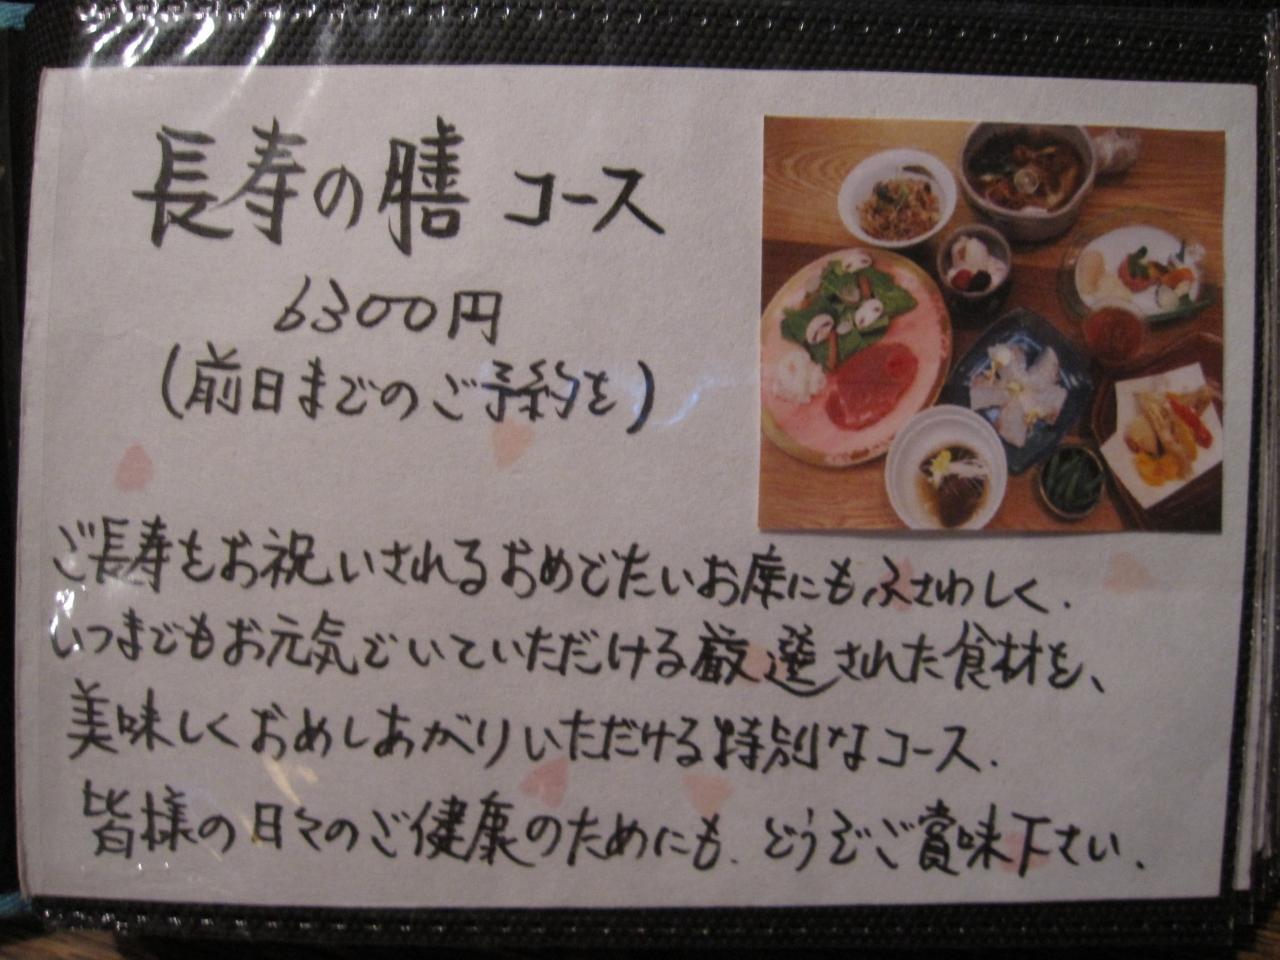 長寿の膳 コース
6300円
(前日までのご予約を)
ご長寿をお祝いされるおめでたいお席にもふさわしく.
いつまでもお元気でいていただける厳選された食材を、
美味しくおめしあがりいただける特別なコース.
皆様の日々のご健康のためにも. どうぞご賞味下さい.